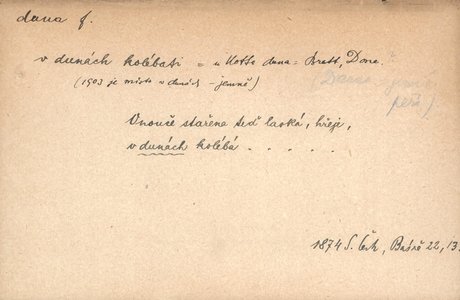 duna f.
v dunách kolébati = u Kotta duna = Brett, Done.
(1903 je místo v dunách - jemně)
(Duna
peří).
Vnouče stařena teď laská, hřeje,
v dunách kolébá . . . . .
1874 S. Čech, Bouře 22, 13.